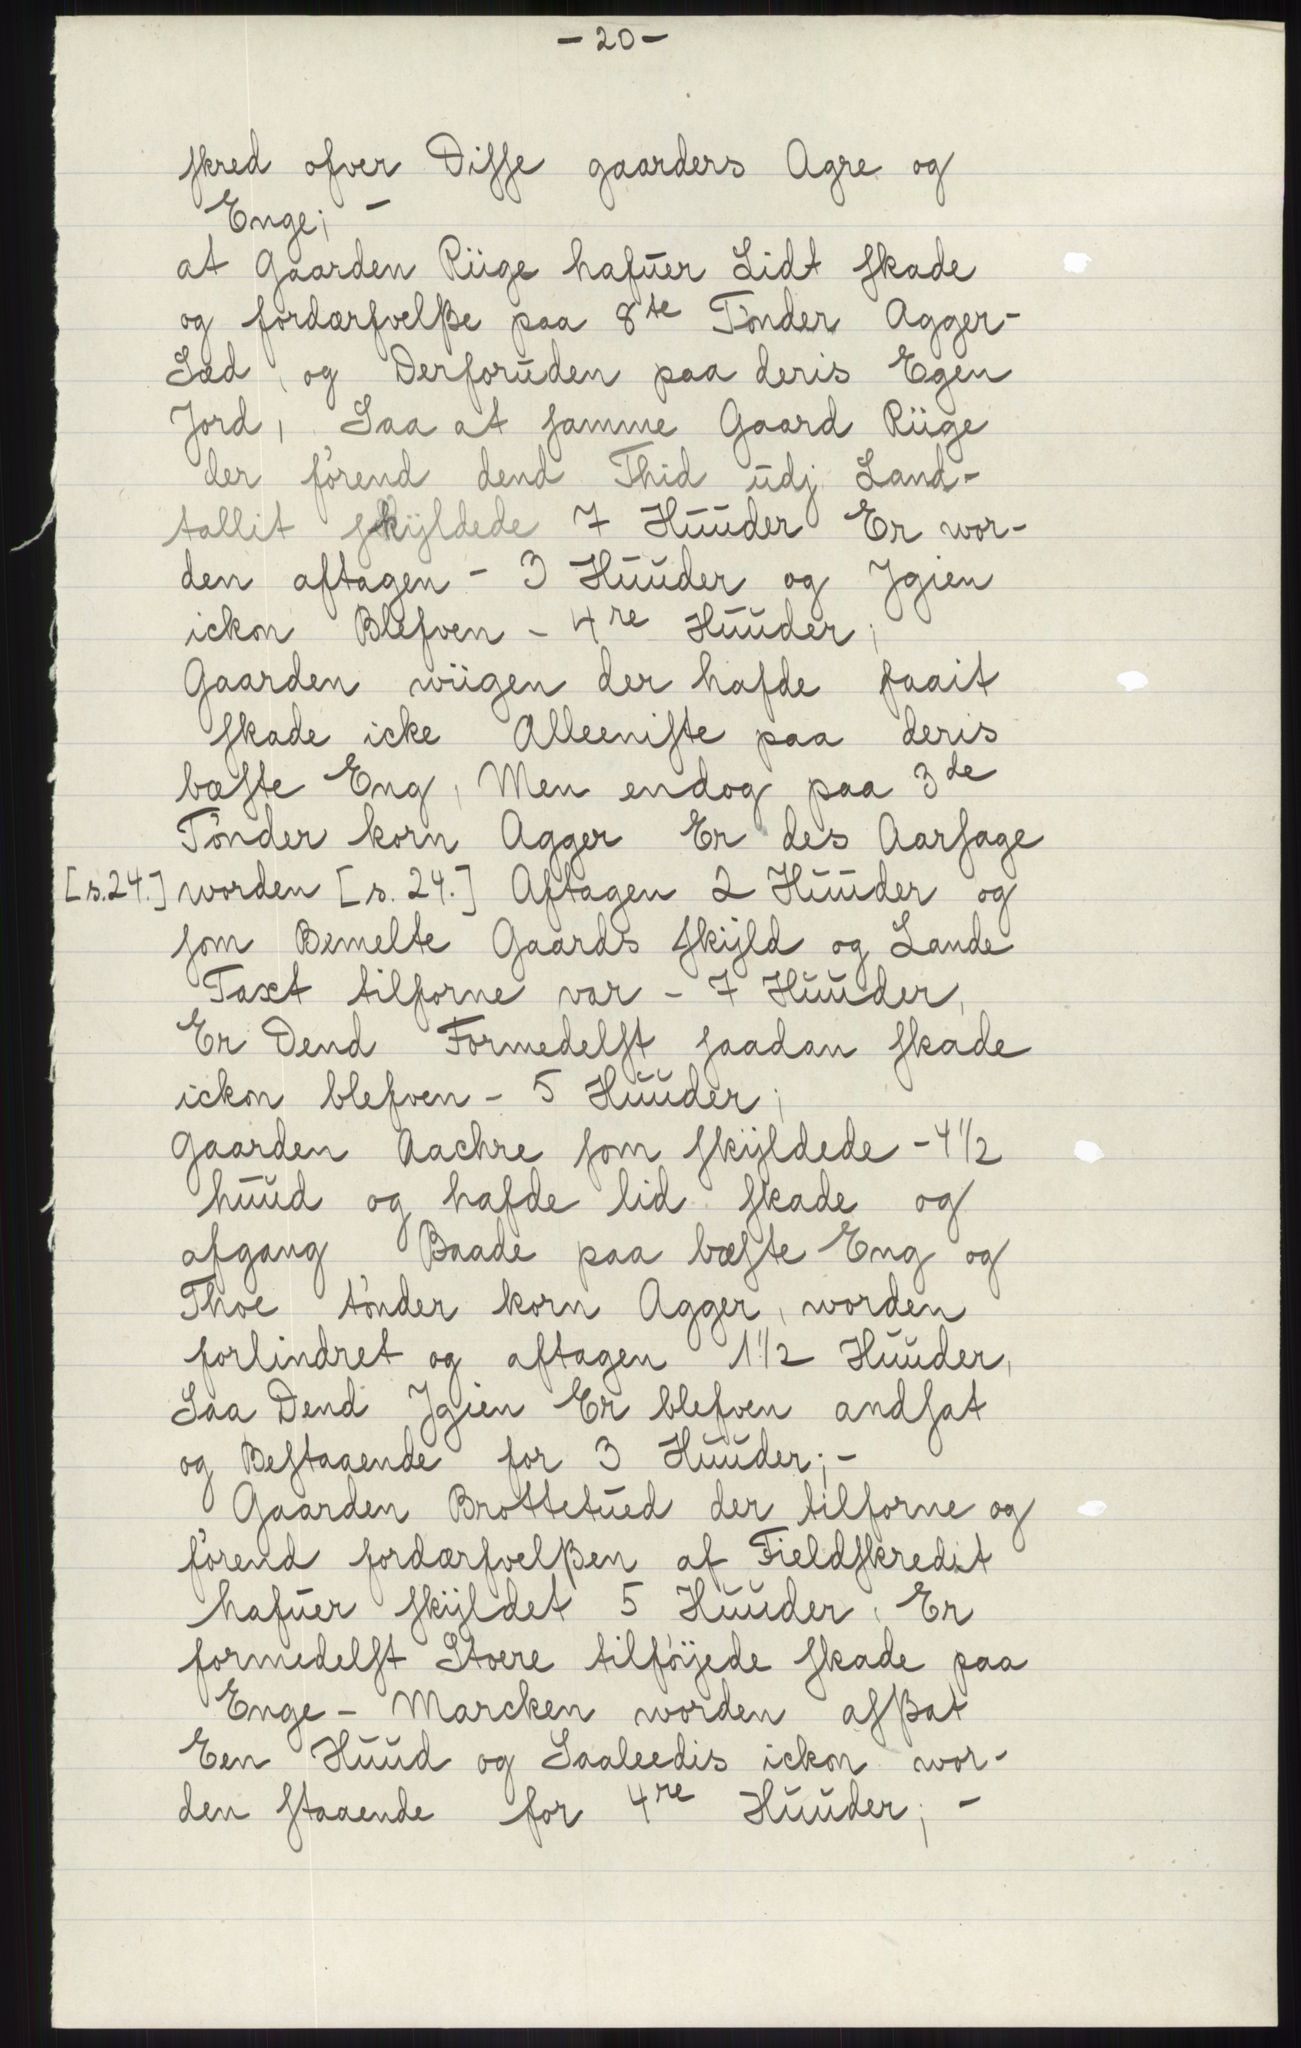 - 20 -
skred ofver Disse gaarders Agre og
Enge; -
at Gaarden Riige hafuer Lidt skade
og fordærfvelße paa 8te Tønder Agger-
Sæd, og Derforuden paa deris Egen
Jord, Saa at samme Gaard Riige
der førend dend Thid udj Land-
tallit skyldede 7 Huuder Er wor-
den aftagen - 3 Huuder og Jgien
ickon Blefven - 4re Huuder;
Gaarden wiigen der hafde faait
skade icke Alleeniste paa deris
bæste Eng, Men endog paa 3de
Tønder korn Agger Er des Aarsage
[s.24.] worden [s. 24.] Aftagen 2 Huuder og
som Bemelte Gaards skyld og Lande
Taxt tilforne var - 7 Huuder,
Er Dend Formedelst saadan skade
ickon blefven - 5 Huuder;
Gaarden Aachre som skyldede - 4 1/2
huud og hafde lid skade og
afgang Baade paa bæste Eng og
Thoe tønder korn Agger, worden
forlindret og aftagen 1 1/2 Huuder,
Saa Dend Jgien Er blefven andsat
og Bestaaende for 3 Huuder; -
Gaarden Brottetued der tilforne og
førend fordærfvelßen af Fieldskredit
hafuer skyldet 5 Huuder, Er
formedelst Stoere tilføyede skade paa
Enge - Marcken worden afßat
Een Huud og Saaleedis ickon wor-
den staaende for 4re Huuder; -